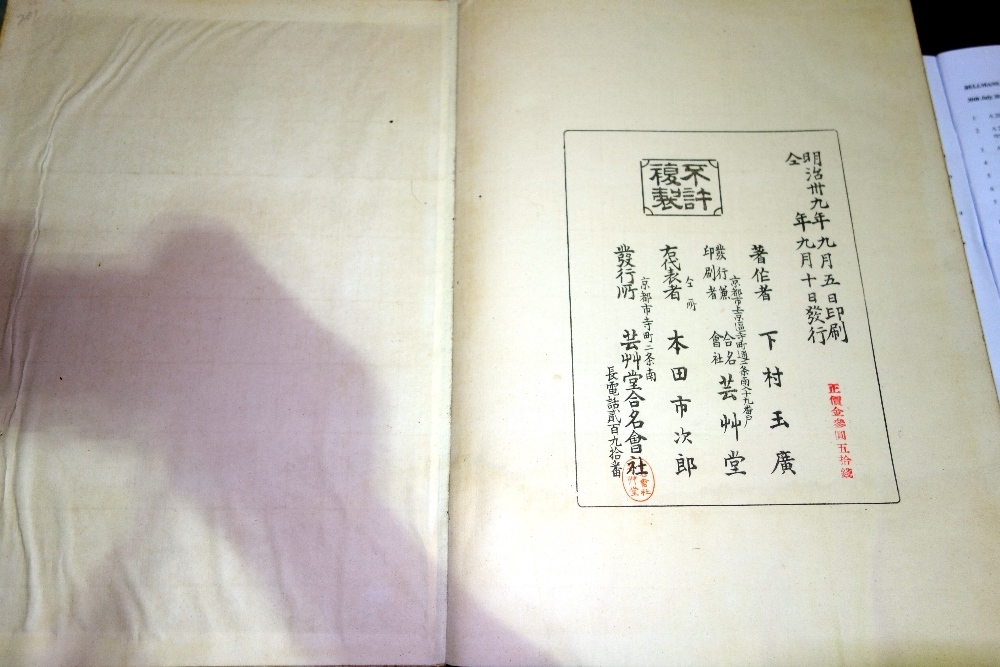 明治卅九年九月五日印刷
仝年九月十日發行
正價金參圓五拾錢
不許複製
著作者 下村玉廣
京都市上京區寺町通二条南入十九番戶
發行兼印刷者 合名會社 芸艸堂
仝所
右代表者 本田市次郎
京都市寺町二条南
發行所 芸艸堂合名會社
長電話貳百九拾番